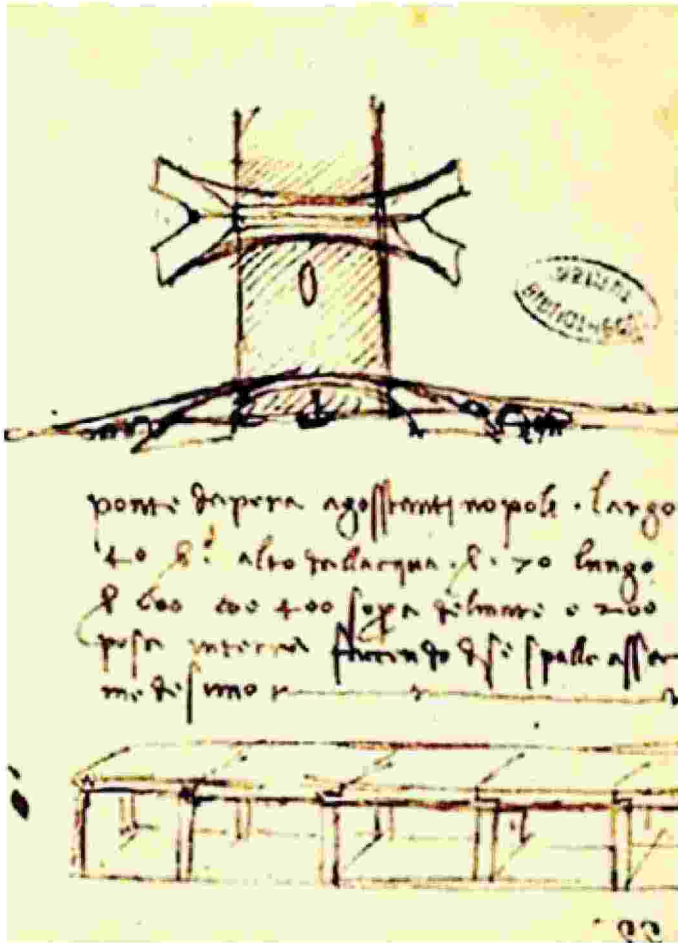 ponte dapera agosstantinopoli · largo
40 br alto dallacqua · br · 70 lungo
br 600 coe 400 sopra delmare e 200
posa interra faciendo dise spalle asse
medesimo